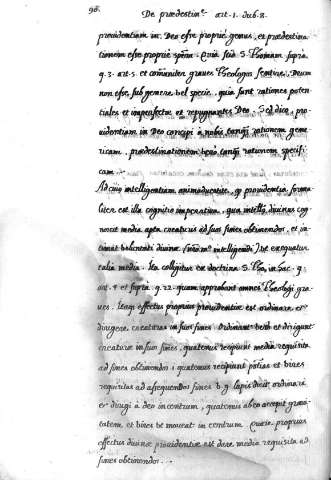 98.
De prædestin.e art. 1. dub. 2.
providentiam in Deo esse proprie genus, et prædestina
tionem esse proprie spēm. Quia sed S. Thomam supra
q. 3. art. 5. et comūniter graves Theologos Deum
non esse sub genere vel specie, quia sunt rationes poten
tiales et imperfectæ et repugnantes Deo. Sed dico, pro
videntiam in Deo concipi a nobis tanq̄ rationem gene
ricam, prædestinationem vero tanq̄ rationem specifi
cam.
Ad cuius intelligentiam animadvertite, q providentia forma
liter est illa cognitio imperativa, qua divinus cog
noscit media apta creaturis ad suos fines obtinendos, et in
timat voluntati divinæ intelligendi) ut exequatur
talia media. Ita colligitur ex doctrina S. Tho. in hac q.
art. 4 et supra q. 22. quam approbant omnes Theologi gra
ves. Itaq effectus proprius providentiæ est ordinare et
dirigere creaturas in suos fines. Ordinant vero et dirigunt
creaturæ in suos fines, quatenus recipiunt media requisita
ad fines obtinendos: quatenus recipiunt et vires
requisitas ad assequendos fines v. g. lapis dicit ordinari
et dirigi a Deo in centrum, quatenus ab eo accepit gravi
tatem et vires ut moveat in centrum proprius
effectus divinæ providentiæ est dare media requisita ad
fines obtinendos.